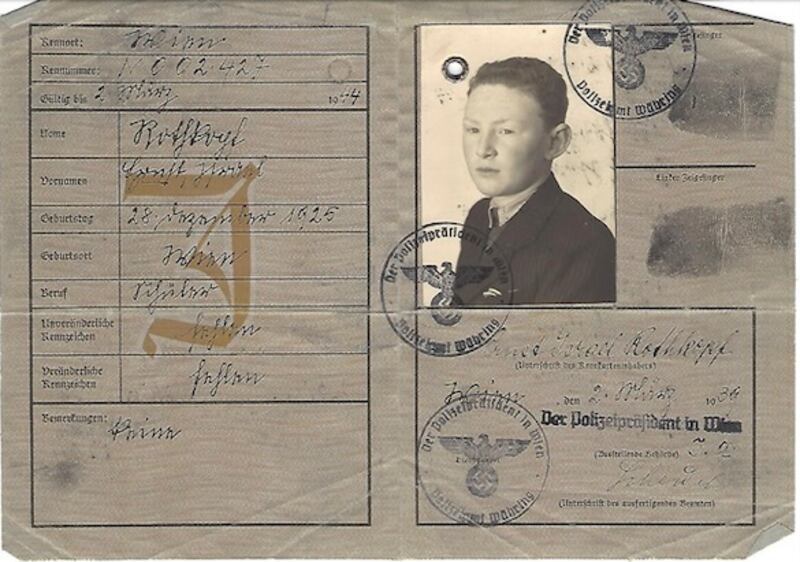 Kennort: Wien
Kennnummer: N 002427
Gültig bis 2. März 1944
Name Rothkopf
Vornamen Ernst Israel
Geburtstag 28. Dezember 1925
Geburtsort Wien
Beruf Schüler
Unveränderliche Kennzeichen fehlen
Veränderliche Kennzeichen fehlen
Bemerkungen: Keine
J
Der Polizeipräsident in Wien
Polizeiamt Währing
Linker Zeigefinger
Der Polizeipräsident in Wien
Polizeiamt Währing
Ernst Israel Rothkopf
(Unterschrift des Kennkarteninhabers)
Wien den 2. März 1939
Der Polizeipräsident in Wien
(Ausstellende Behörde)
(Unterschrift des ausfertigenden Beamten)
Der Polizeipräsident in Wien
Polizeiamt Währing